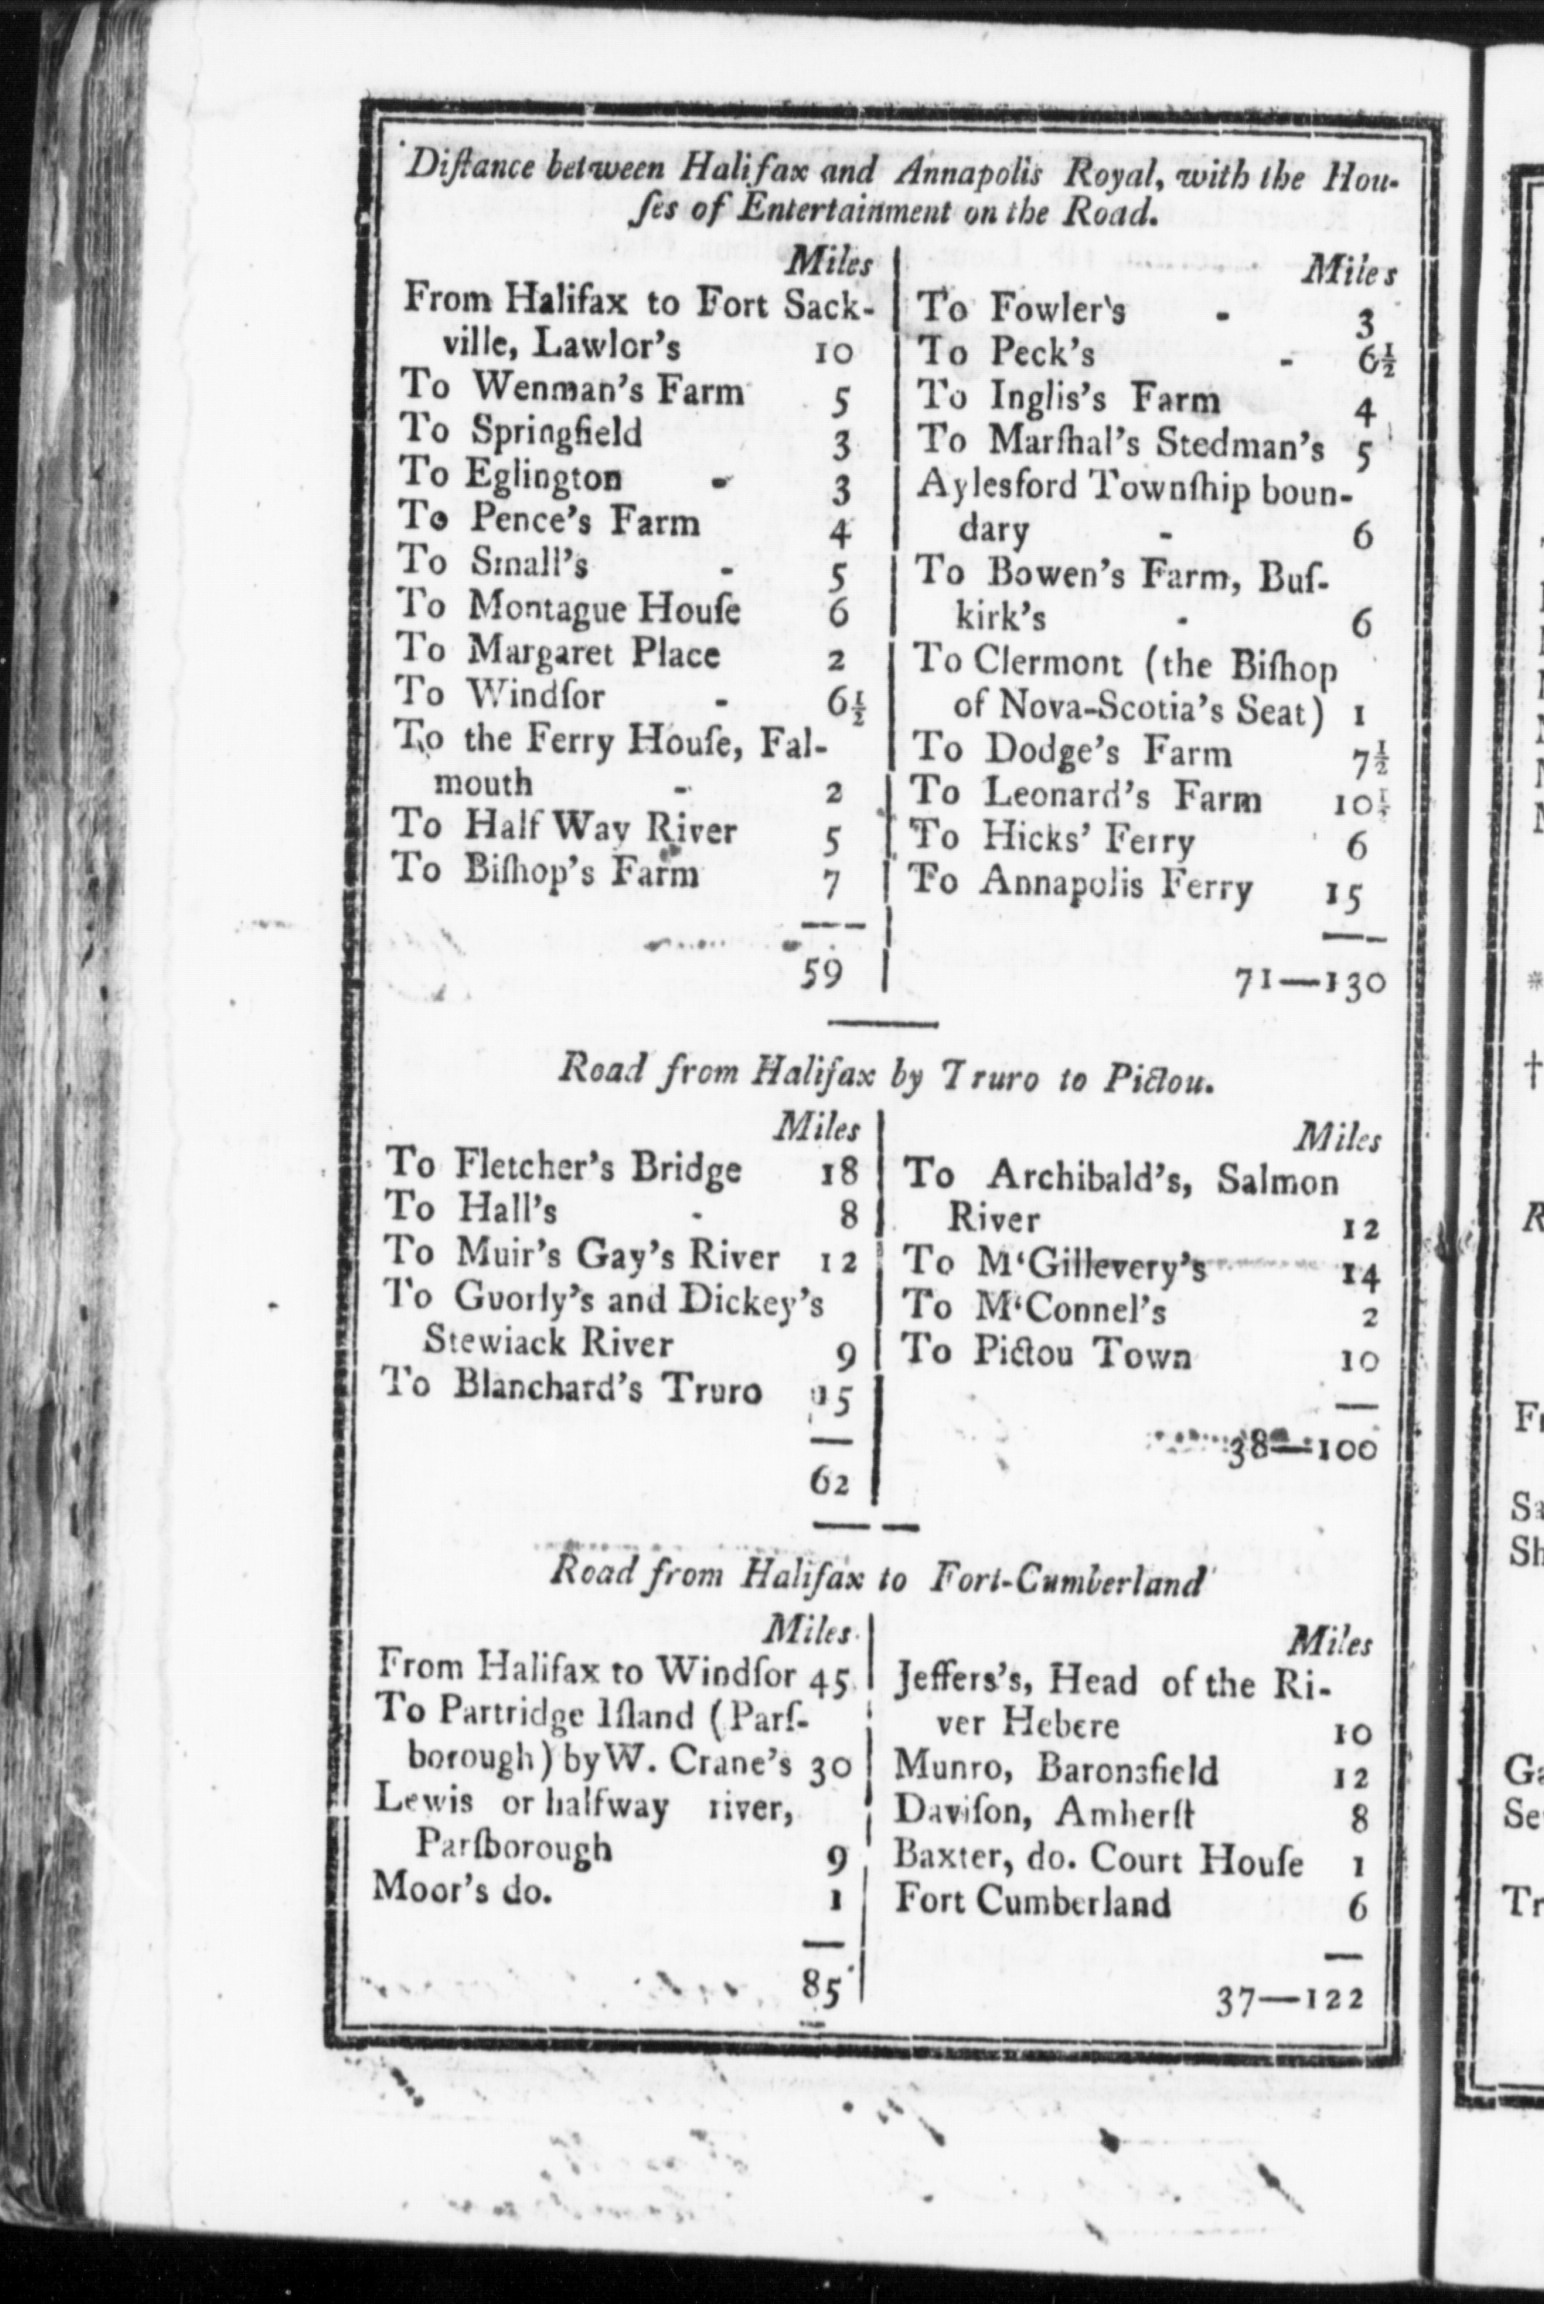 Diſtance between Halifax and Annapolis Royal, with the Hou-
ſes of Entertainment on the Road.
Miles
From Halifax to Fort Sack-
ville, Lawlor's 10
To Wenman's Farm 5
To Springfield 3
To Eglington - 3
To Pence's Farm 4
To Small's - 5
To Montague Houſe 6
To Margaret Place 2
To Windſor - 6½
To the Ferry Houſe, Fal-
mouth - 2
To Half Way River 5
To Biſhop's Farm 7
59
Miles
To Fowler's - 3
To Peck's - 6½
To Inglis's Farm 4
To Marſhal's Stedman's 5
Aylesford Townſhip boun-
dary - 6
To Bowen's Farm, Buſ-
kirk's - 6
To Clermont (the Biſhop
of Nova-Scotia's Seat) 1
To Dodge's Farm 7½
To Leonard's Farm 10½
To Hicks' Ferry 6
To Annapolis Ferry 15
71—130
Road from Halifax by Truro to Pictou.
Miles
To Fletcher's Bridge 18
To Hall's - 8
To Muir's Gay's River 12
To Guorly's and Dickey's
Stewiack River 9
To Blanchard's Truro 15
62
Miles
To Archibald's, Salmon
River 12
To M‘Gillevery's 14
To M‘Connel's 2
To Pictou Town 10
38—100
Road from Halifax to Fort-Cumberland
Miles
From Halifax to Windſor 45
To Partridge Iſland (Parſ-
borough) by W. Crane's 30
Lewis or halfway river,
Parſborough 9
Moor's do. 1
85
Miles
Jeffers's, Head of the Ri-
ver Hebere 10
Munro, Baronsfield 12
Daviſon, Amherſt 8
Baxter, do. Court Houſe 1
Fort Cumberland 6
37—122